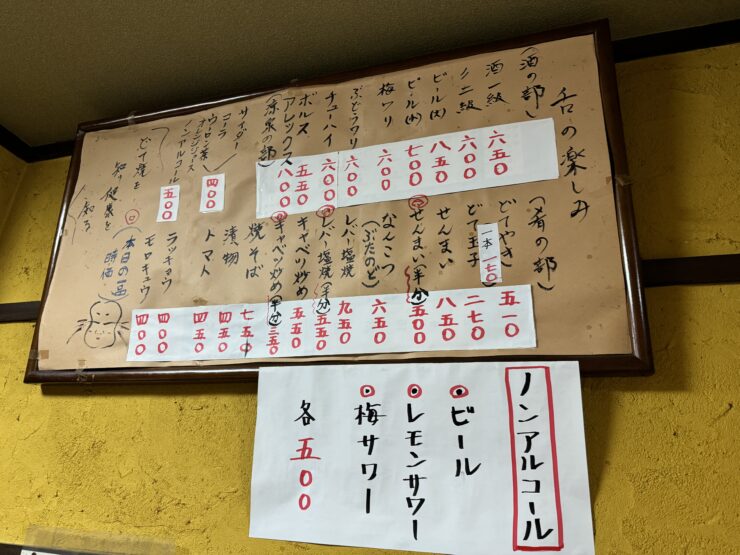 舌の楽しみ
(酒の部)
酒一級 六五〇
〃二級 六〇〇
ビール(大) 八五〇
ビール(小) 七〇〇
梅ワリ 六〇〇
ぶどうワリ 六〇〇
チューハイ 六〇〇
ボルス 五五〇
アレックス 八〇〇
(涼泉の部)
サイダー
コーラ
ウーロン茶 四〇〇
オレンジジュース
ノンアルコール 五〇〇
どて焼を
(肴の部)
どてやき 五一〇
一本 一七〇
どて玉子 二七〇
せんまい 八五〇
せんまい(半分) 五〇〇
なんこつ 六五〇
(ぶたのど)
レバー塩焼 九五〇
レバー塩焼(半分) 五五〇
キャベツ炒め 五五〇
キャベツ炒め(半分) 三五〇
焼そば 七五〇
漬物 四五〇
トマト 四五〇
ラッキョウ 四〇〇
モロキュウ 四〇〇
(本日の一品)
時価
ノンアルコール
ビール
レモンサワー
梅サワー
各五〇〇